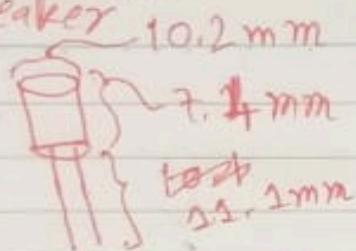 eaker
10.2 mm
7.4 mm
11.1mm